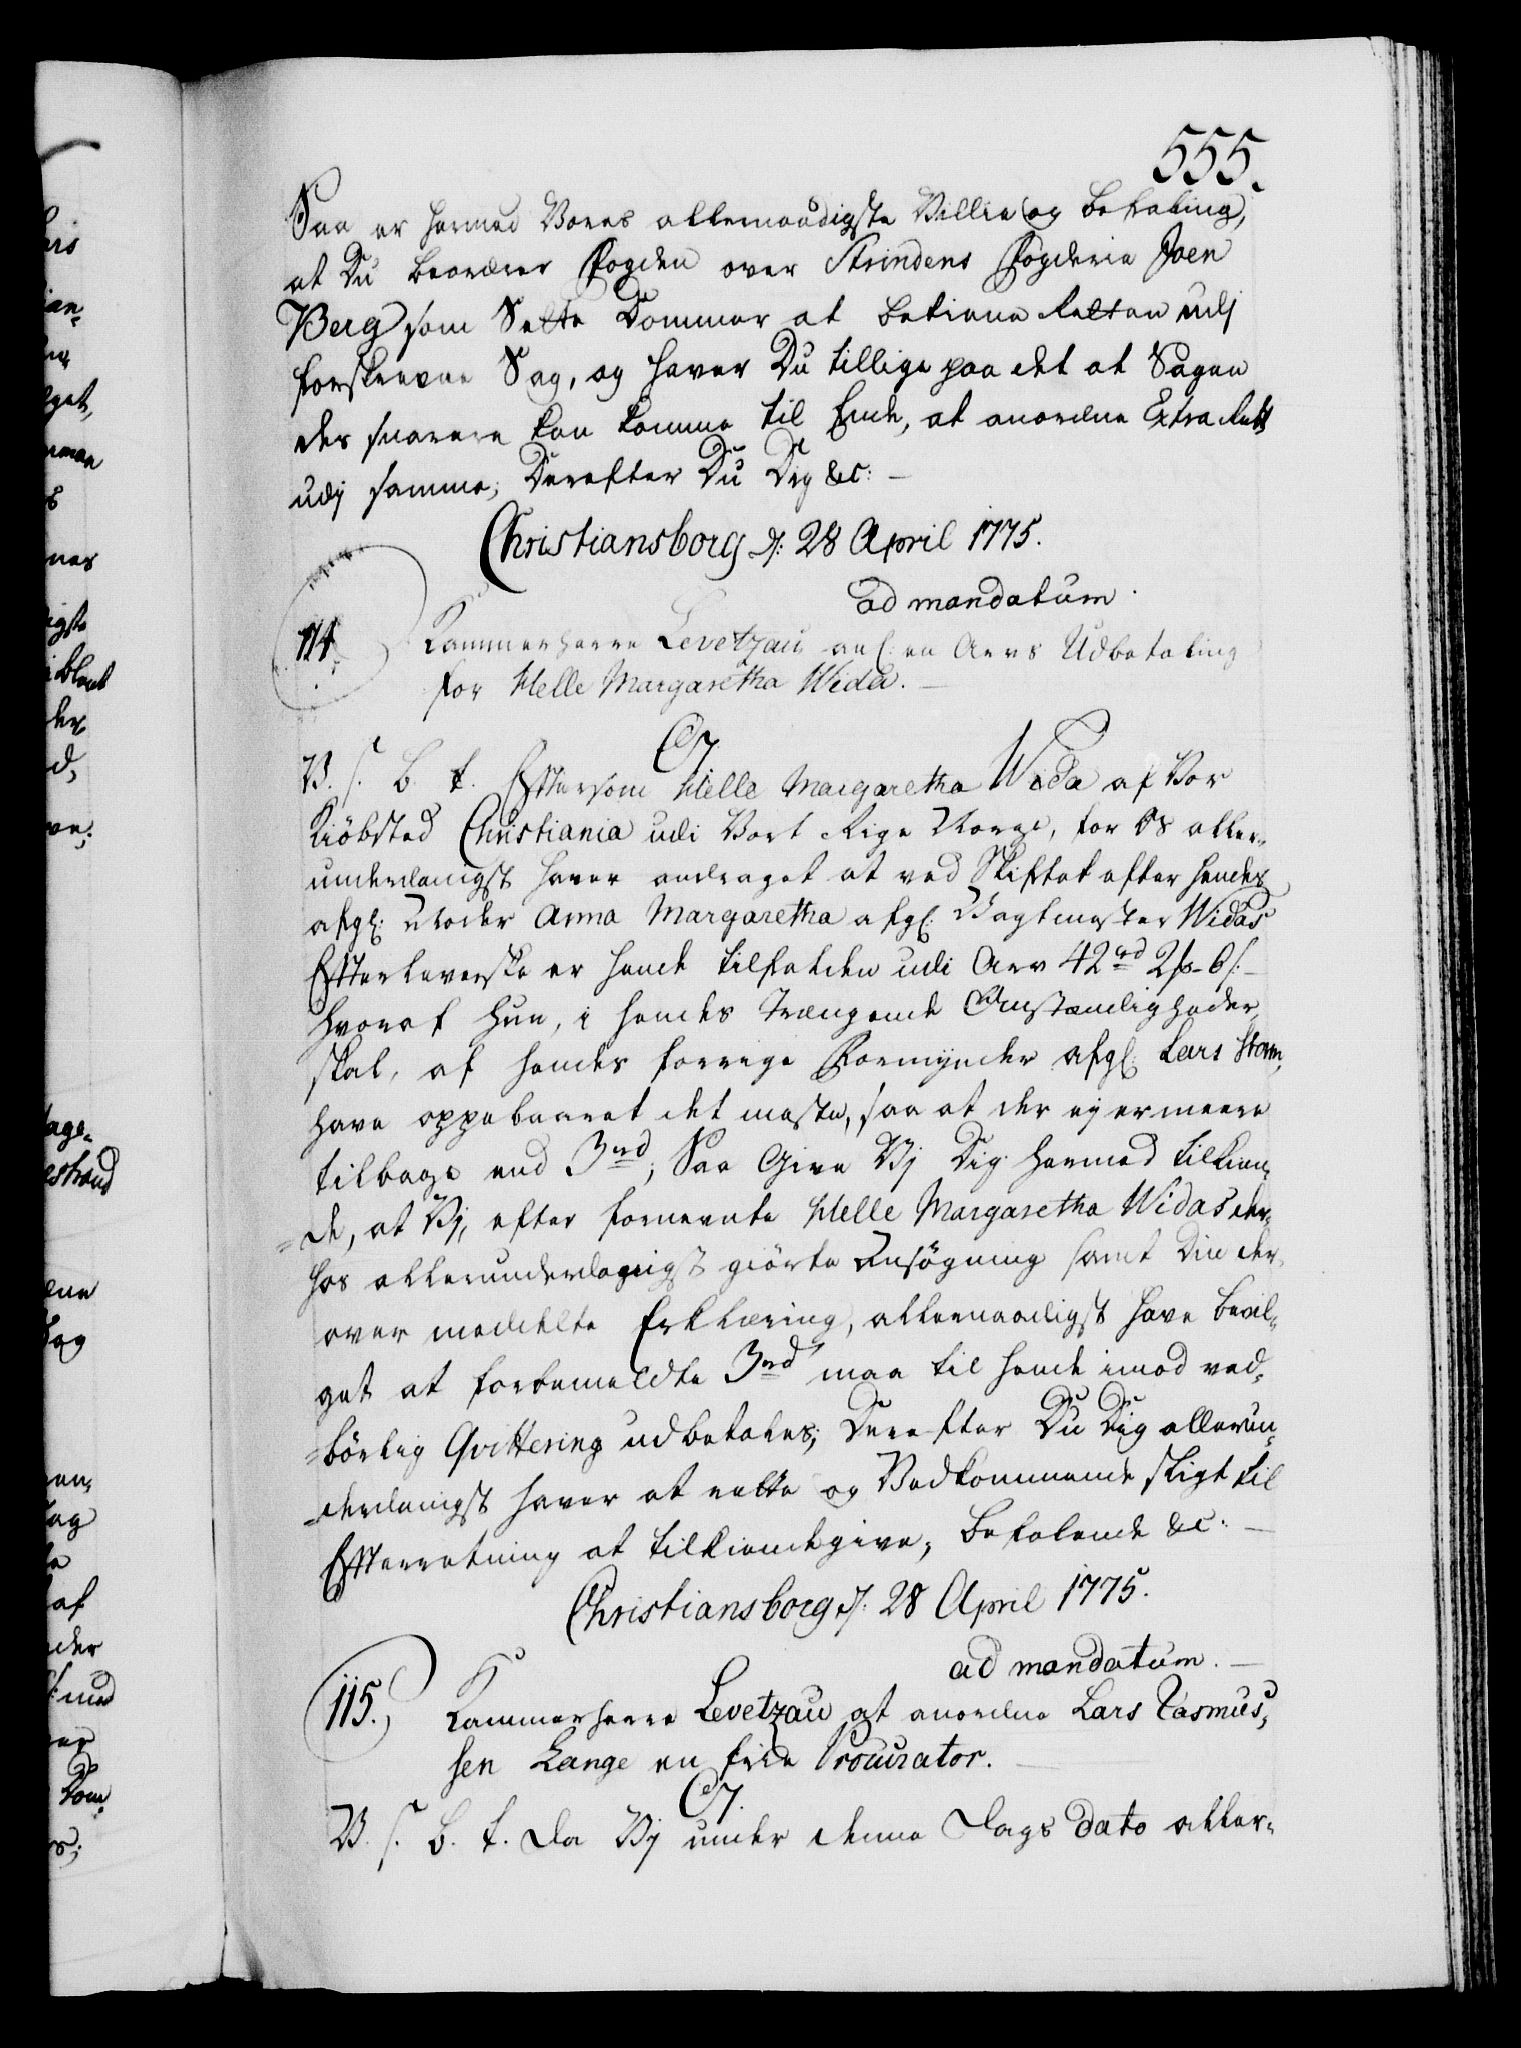 555.
Saa er hermed Vores allernaadigste Villie og befaling,
at Du beordrer Fogden over Strindens Fogderie Joen
Berg som Sætte Dommer at betiene Retten udj
forskrevne Sag, og haver Du tillige paa det at Sagen
des snarere kan komme til Ende, at anordne Extra Rett
udj samme; Derefter Du Dig &c: –
Christiansborg d: 28 April 1775.
ad mandatum.
114
Kammerherre Levetzau anl: en Arvs Udbetaling
for Helle Margaretha Wida. –
C7.
V. s. B. t. Eftersom Helle Margaretha Wida af Vor
Kiöbsted Christiania udi Vort Rige Norge, for Os aller-
underdanigst haver andraget at ved Skiftet efter hendes
afgl: Moder Anna Margaretha afgl: Vagtmester Widas
Efterleverske er hende tilfalden udi Arv 42 rd 2 [mk] 6 s: –
hvoraf hun, i hendes trængende Omstændigheder,
skal, af hendes forrige Formynder afgl: Lars Storm,
have oppebaaret det meste, saa at der ej er meere
tilbage end 3 rd; Saa Give Vj Dig hermed tilkien-
de, at Vj, efter fornevnte Helle Margaretha Widas der-
hos allerunderdanigst giorte Ansøgning samt Din der-
over meddelte Erklæring, allernaadigst have bevil-
get at forbemeldte 3 rd maa til hende imod ved-
börlig Qvittering udbetales; Derefter Du Dig allerun-
derdanigst haver at rette og Vedkommende sligt til
Efterretning at tilkiendegive, Befalende &c: –
Christiansborg d: 28 April 1775.
ad mandatum. –
115.
Kammerherre Levetzau at anordne Lars Rasmus-
sen Lange en frie Procurator. –
C7.
V. s. B. t. Da Vj under denne Dags dato aller-